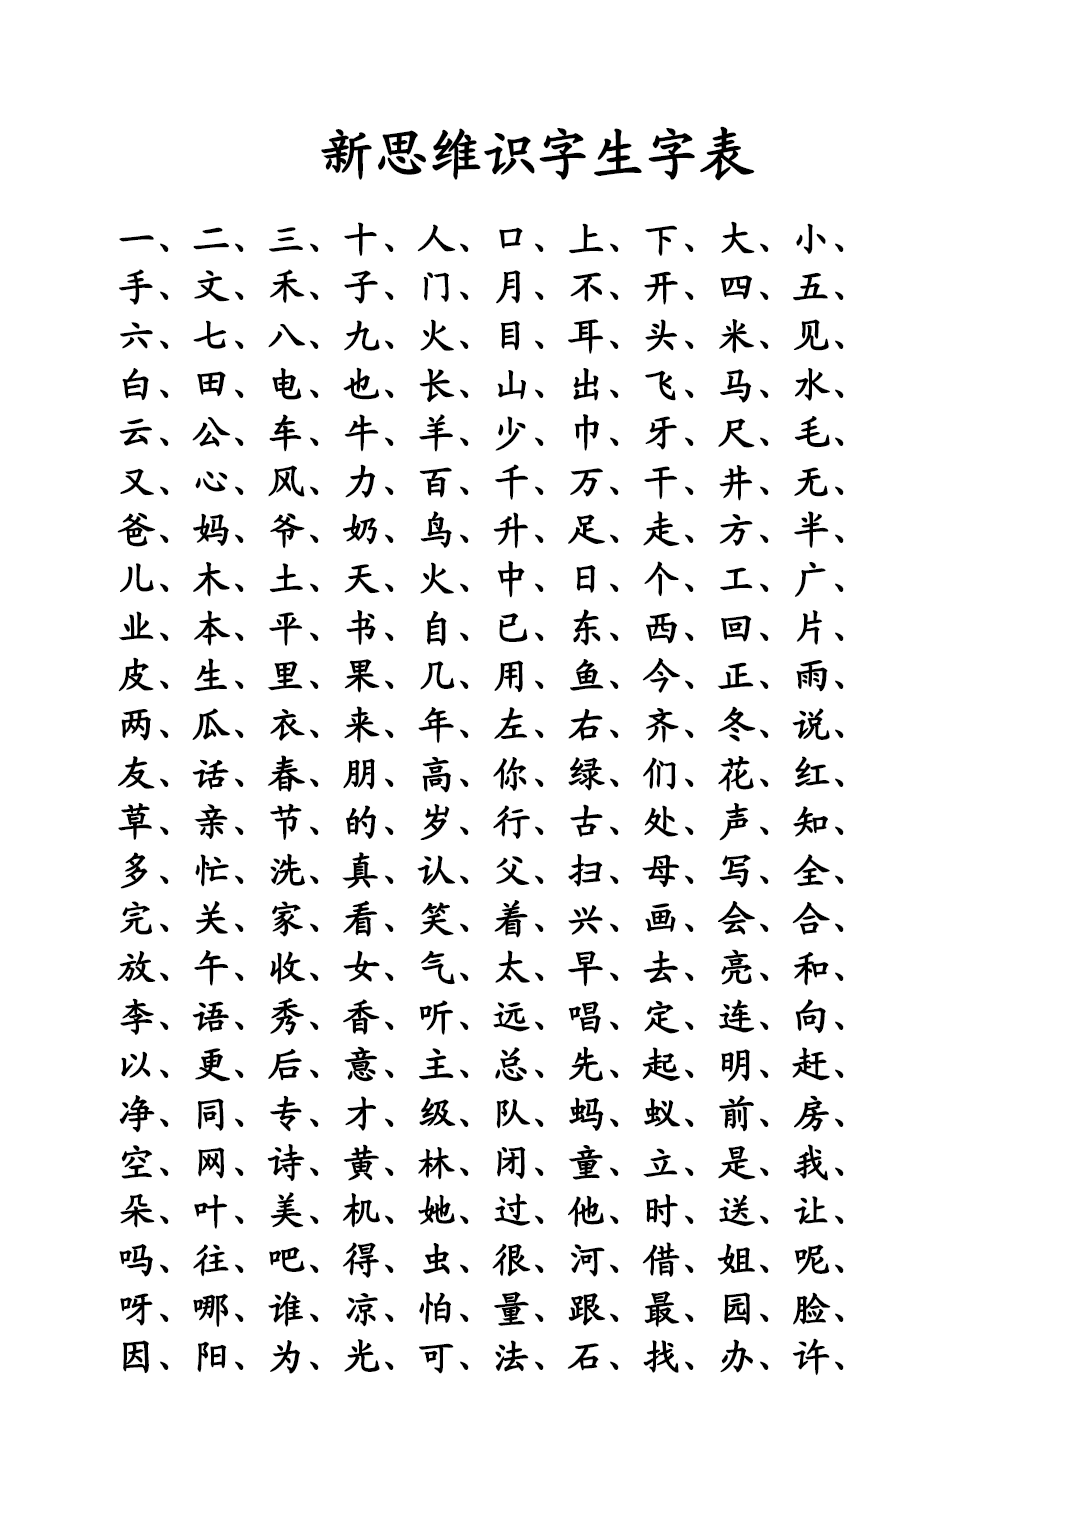 新思维识字生字表
一、二、三、十、人、口、上、下、大、小、
手、文、禾、子、门、月、不、开、四、五、
六、七、八、九、火、目、耳、头、米、见、
白、田、电、也、长、山、出、飞、马、水、
云、公、车、牛、羊、少、巾、牙、尺、毛、
又、心、风、力、百、千、万、干、井、无、
爸、妈、爷、奶、鸟、升、足、走、方、半、
儿、木、土、天、火、中、日、个、工、广、
业、本、平、书、自、已、东、西、回、片、
皮、生、里、果、几、用、鱼、今、正、雨、
两、瓜、衣、来、年、左、右、齐、冬、说、
友、话、春、朋、高、你、绿、们、花、红、
草、亲、节、的、岁、行、古、处、声、知、
多、忙、洗、真、认、父、扫、母、写、全、
完、关、家、看、笑、着、兴、画、会、合、
放、午、收、女、气、太、早、去、亮、和、
李、语、秀、香、听、远、唱、定、连、向、
以、更、后、意、主、总、先、起、明、赶、
净、同、专、才、级、队、蚂、蚁、前、房、
空、网、诗、黄、林、闭、童、立、是、我、
朵、叶、美、机、她、过、他、时、送、让、
吗、往、吧、得、虫、很、河、借、姐、呢、
呀、哪、谁、凉、怕、量、跟、最、园、脸、
因、阳、为、光、可、法、石、找、办、许、